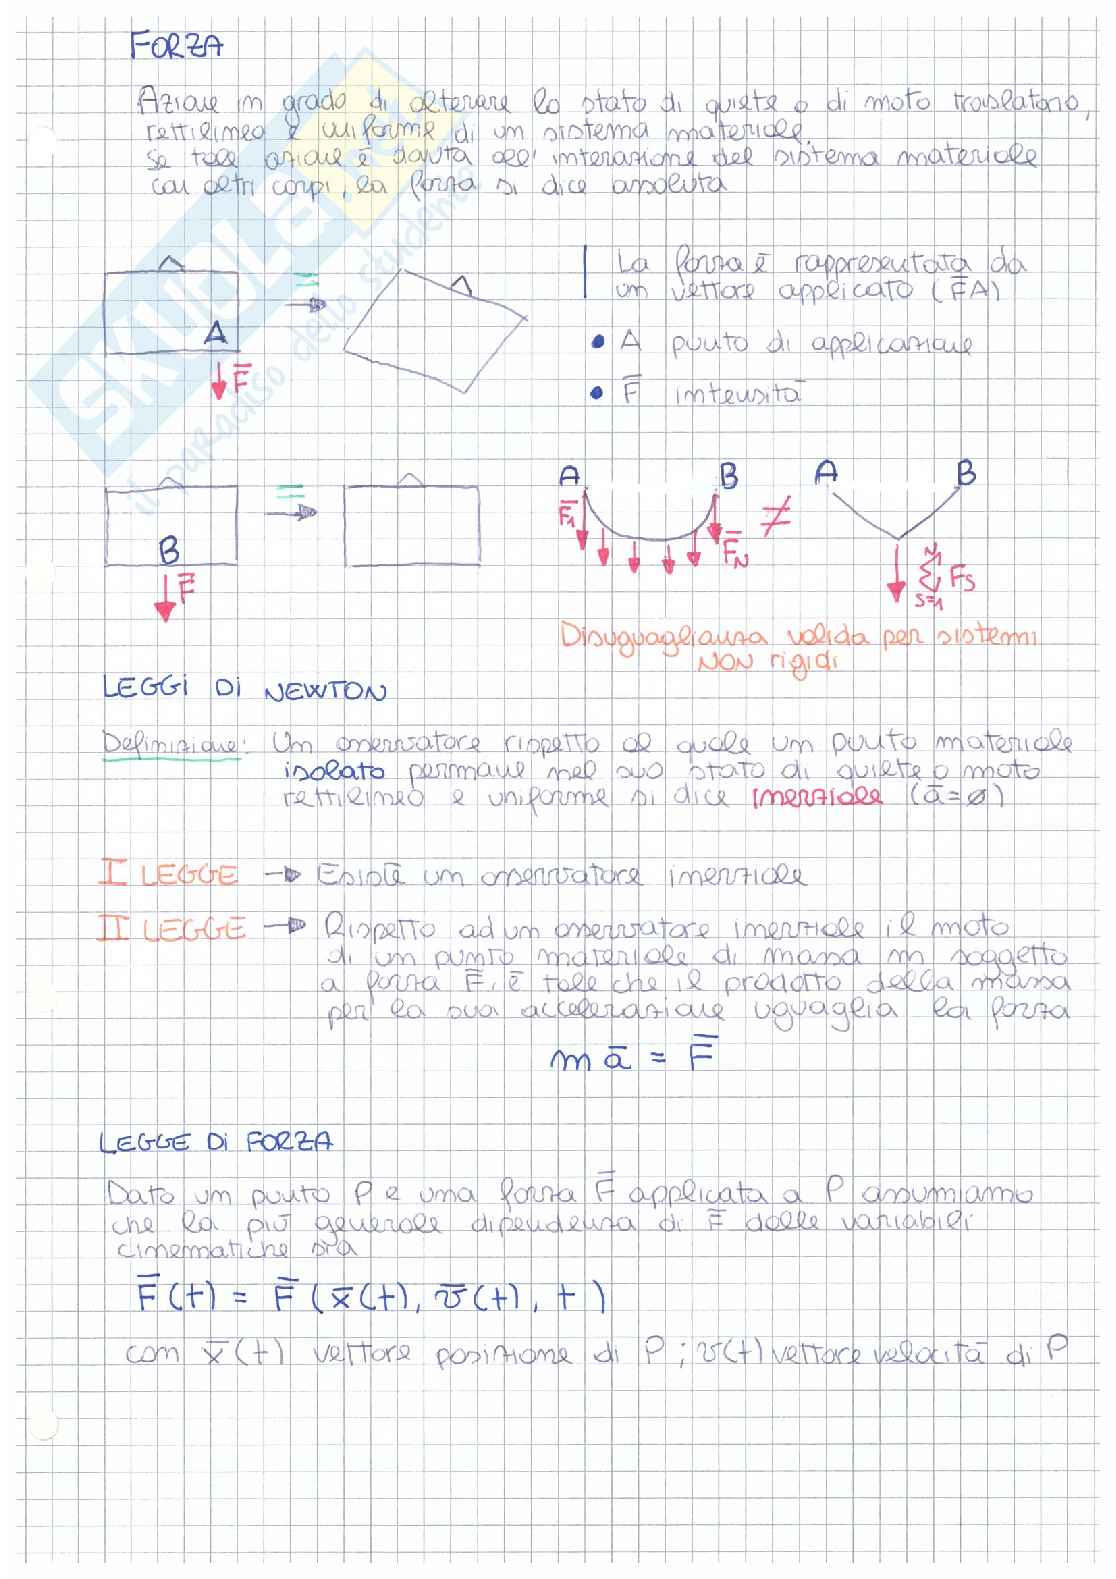 FORZA
Azione in grado di alterare lo stato di quiete o di moto traslatorio,
rettilineo e uniforme di un sistema materiale.
Se tale azione è dovuta all'interazione del sistema materiale
con altri corpi, la forza si dice assoluta
SKUOLA.net
il paradiso dello studente
A
F̅
La forza è rappresentata da
un vettore applicato (F̅A)
• A punto di applicazione
• F̅ intensità
B
F̅
A B ≠ A B
F̅1 F̅N
N
Σ Fs
s=1
Disuguaglianza valida per sistemi
NON rigidi
LEGGI DI NEWTON
Definizione: Un osservatore rispetto al quale un punto materiale
isolato permane nel suo stato di quiete o moto
rettilineo e uniforme si dice inerziale (a̅=ø)
I LEGGE → Esiste un osservatore inerziale
II LEGGE → Rispetto ad un osservatore inerziale il moto
di un punto materiale di massa m soggetto
a forza F̅, è tale che il prodotto della massa
per la sua accelerazione uguaglia la forza
m a̅ = F̅
LEGGE DI FORZA
Dato un punto P e una forza F̅ applicata a P assumiamo
che la più generale dipendenza di F̅ dalle variabili
cinematiche sia
F̅(t) = F̅(x̅(t), v̅(t), t)
con x̅(t) vettore posizione di P; v(t) vettore velocità di P